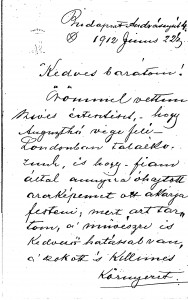 Budapest Andrássy út
1912 Junius 22
Kedves barátom!
Örömmel vettem
szíves értesítést, hogy
Augusztus vége felé
Londonban találko-
zunk, is hogy fiam
által annyira óhajtott
arcképemet ott akarja
festeni; mert azt tar-
tom, a művészre is
kedvező hatással van,
a szokott és kellemes
környezet.